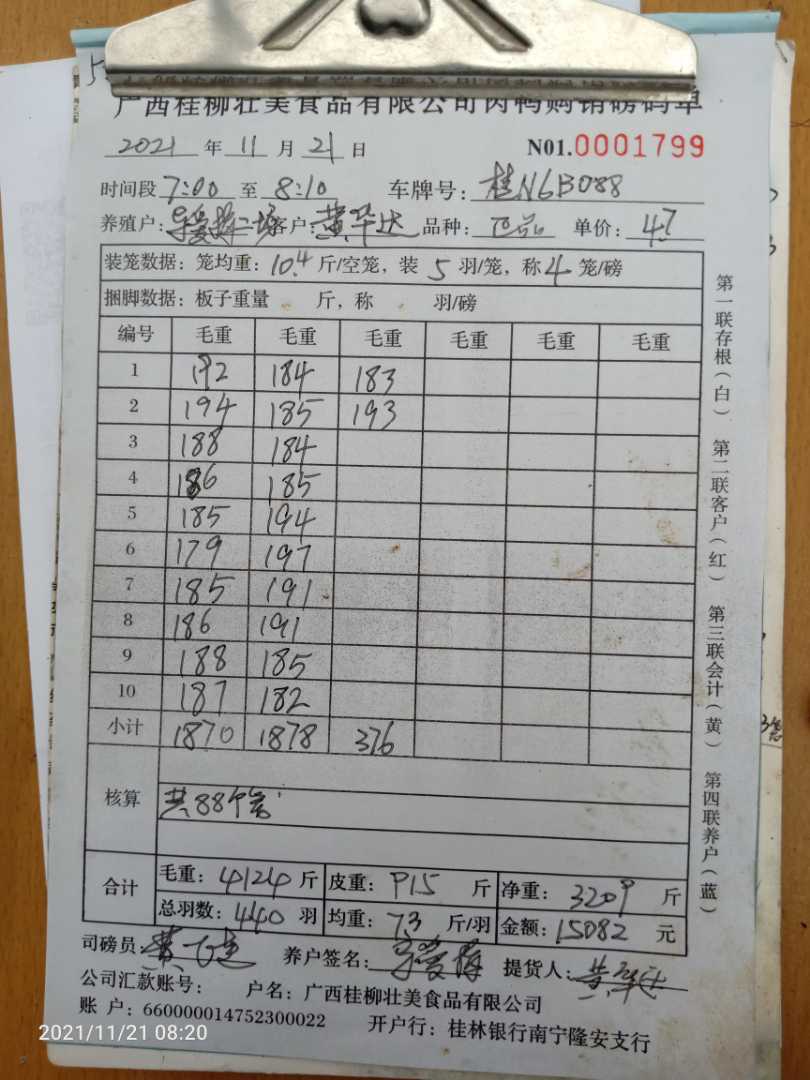 广西桂柳壮美食品有限公司肉鸭购销磅码单
2021 年 11 月 21 日 N01.0001799
时间段 7:00 至 8:10 车牌号: 桂N6B088
养殖户: 客户: 黄华达 品种: 正品 单价: 4.7
装笼数据: 笼均重: 10.4 斤/空笼, 装 5 羽/笼, 称 4 笼/磅
捆脚数据: 板子重量 斤, 称 羽/磅
编号 毛重 毛重 毛重 毛重 毛重 毛重
1 192 184 183
2 194 185 193
3 188 184
4 186 185
5 185 194
6 179 197
7 185 191
8 186 191
9 188 185
10 187 182
小计 1870 1878 376
核算 共88个笼
合计 毛重: 4124 斤 皮重: 915 斤 净重: 3209 斤
总羽数: 440 羽 均重: 7.3 斤/羽 金额: 15082 元
司磅员: 养户签名: 提货人: 黄华达
公司汇款账号: 户名: 广西桂柳壮美食品有限公司
账 户: 660000014752300022 开户行: 桂林银行南宁隆安支行
第一联存根(白) 第二联客户(红) 第三联会计(黄) 第四联养户(蓝)
2021/11/21 08:20